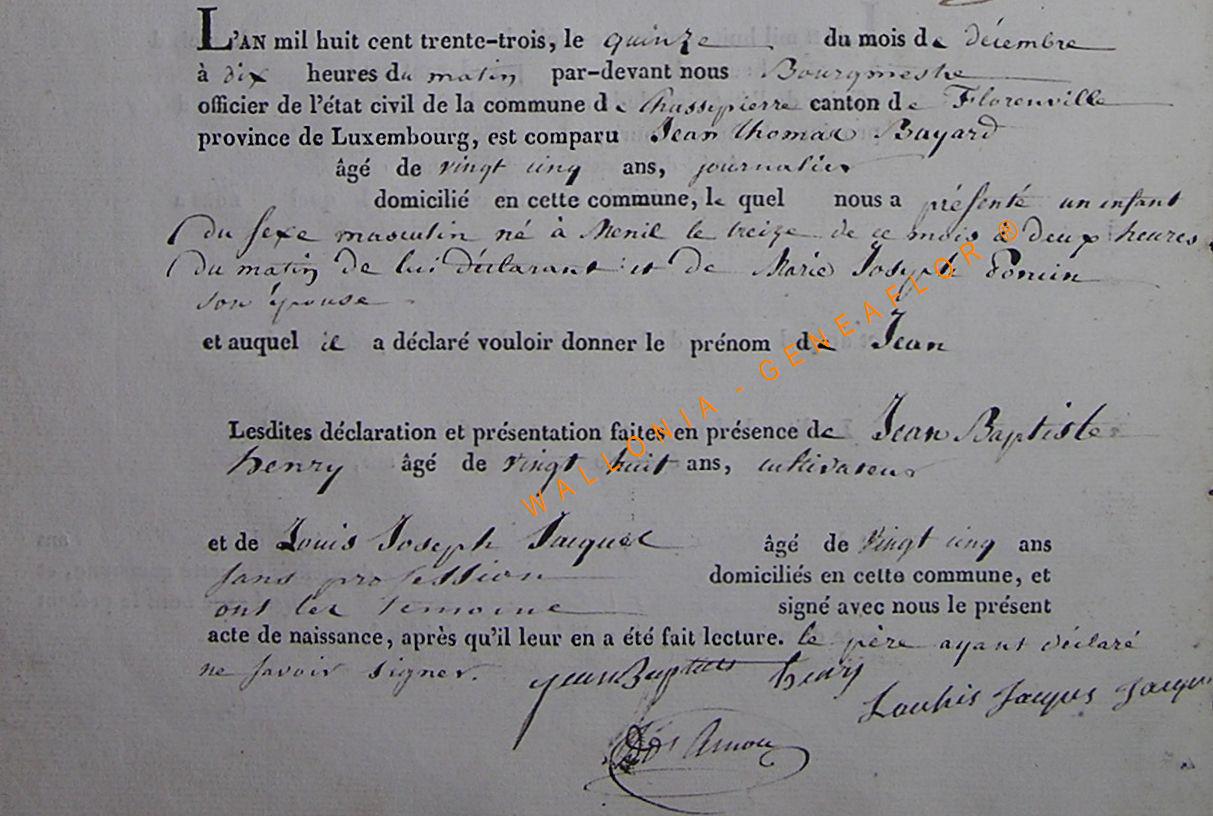 L'AN mil huit cent trente-trois, le quinze du mois de décembre
à dix heures du matin par-devant nous Bourgmestre
officier de l'état civil de la commune de Chassepierre canton de Florenville
province de Luxembourg, est comparu Jean thomas Bayard
âgé de vingt cinq ans, journalier
domicilié en cette commune, le quel nous a présenté un enfant
du sexe masculin né à Menil le treize de ce mois à deux heures
du matin de lui déclarant et de Marie Joseph Poncin
son épouse
et auquel il a déclaré vouloir donner le prénom de Jean
Lesdites déclaration et présentation faites en présence de Jean Baptiste
henry âgé de vingt huit ans, cultivateur
et de Louis Joseph Jacques âgé de vingt cinq ans
sans profession domiciliés en cette commune, et
ont les temoins signé avec nous le présent
acte de naissance, après qu'il leur en a été fait lecture. le père ayant déclaré
ne savoir signer. jean Baptiste henry
Louhis Jacques
WALLONIA - GENEAFLOR ®